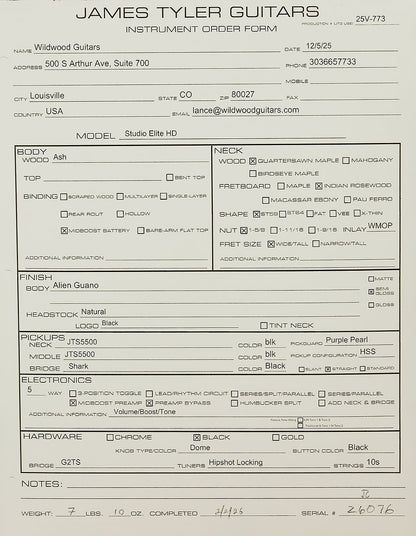 JAMES TYLER GUITARS
INSTRUMENT ORDER FORM
PRODUCTION # (JTG USE) 25V-773
NAME Wildwood Guitars DATE 12/5/25
ADDRESS 500 S Arthur Ave, Suite 700 PHONE 3036657733
MOBILE
CITY Louisville STATE CO ZIP 80027 FAX
COUNTRY USA EMAIL lance@wildwoodguitars.com
MODEL Studio Elite HD
BODY
WOOD Ash
TOP ☐ BENT TOP
BINDING ☐ SCRAPED WOOD ☐ MULTILAYER ☐ SINGLE-LAYER
☐ REAR ROUT ☐ HOLLOW
☒ MIDBOOST BATTERY ☐ BARE-ARM FLAT TOP
ADDITIONAL INFORMATION
NECK
WOOD ☒ QUARTERSAWN MAPLE ☐ MAHOGANY
☐ BIRDSEYE MAPLE
FRETBOARD ☐ MAPLE ☒ INDIAN ROSEWOOD
☐ MACASSAR EBONY ☐ PAU FERRO
SHAPE ☒ ST59 ☐ ST64 ☐ FAT ☐ VEE ☐ X-THIN
NUT ☒ 1-5/8 ☐ 1-11/16 ☐ 1-9/16 INLAY WMOP
FRET SIZE ☒ WIDE/TALL ☐ NARROW/TALL
ADDITIONAL INFORMATION
FINISH
BODY Alien Guano
☐ MATTE
☒ SEMI GLOSS
☐ GLOSS
HEADSTOCK Natural
LOGO Black ☐ TINT NECK
PICKUPS
NECK JTS5500 COLOR blk PICKGUARD Purple Pearl
MIDDLE JTS5500 COLOR blk PICKUP CONFIGURATION HSS
BRIDGE Shark COLOR Black ☐ SLANT ☒ STRAIGHT ☐ STANDARD
ELECTRONICS
5 WAY ☐ 3-POSITION TOGGLE ☐ LEAD/RHYTHM CIRCUIT ☐ SERIES/SPLIT/PARALLEL ☐ SERIES/PARALLEL
☒ MIDBOOST PREAMP ☒ PREAMP BYPASS ☐ HUMBUCKER SPLIT ☐ ADD NECK & BRIDGE
ADDITIONAL INFORMATION Volume/Boost/Tone
HARDWARE ☐ CHROME ☒ BLACK ☐ GOLD
KNOB TYPE/COLOR Dome BUTTON COLOR Black
BRIDGE G2TS TUNERS Hipshot Locking STRINGS 10s
NOTES:
WEIGHT: 7 LBS. 10 OZ. COMPLETED 2/2/26 SERIAL # 26076